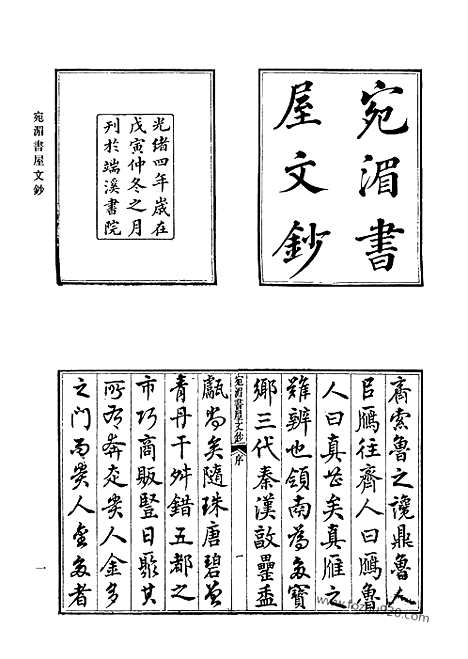 宛湄書
屋文鈔
光緒四年歲在
戊寅仲冬之月
刊於端溪書院
宛湄書屋文鈔
齊索魯之讒鼎魯人
㠯鴈往齊人曰鴈魯
人曰真矣真雁之
難辨也領南為多寶
鄉三代秦漢敦罍盉
宛湄書屋文鈔 序 一
甗尚矣隨珠唐碧曾
青丹干舛錯五都之
市巧商販豎日聚其
所奔走貴人金多
之門而貴人金多者
一